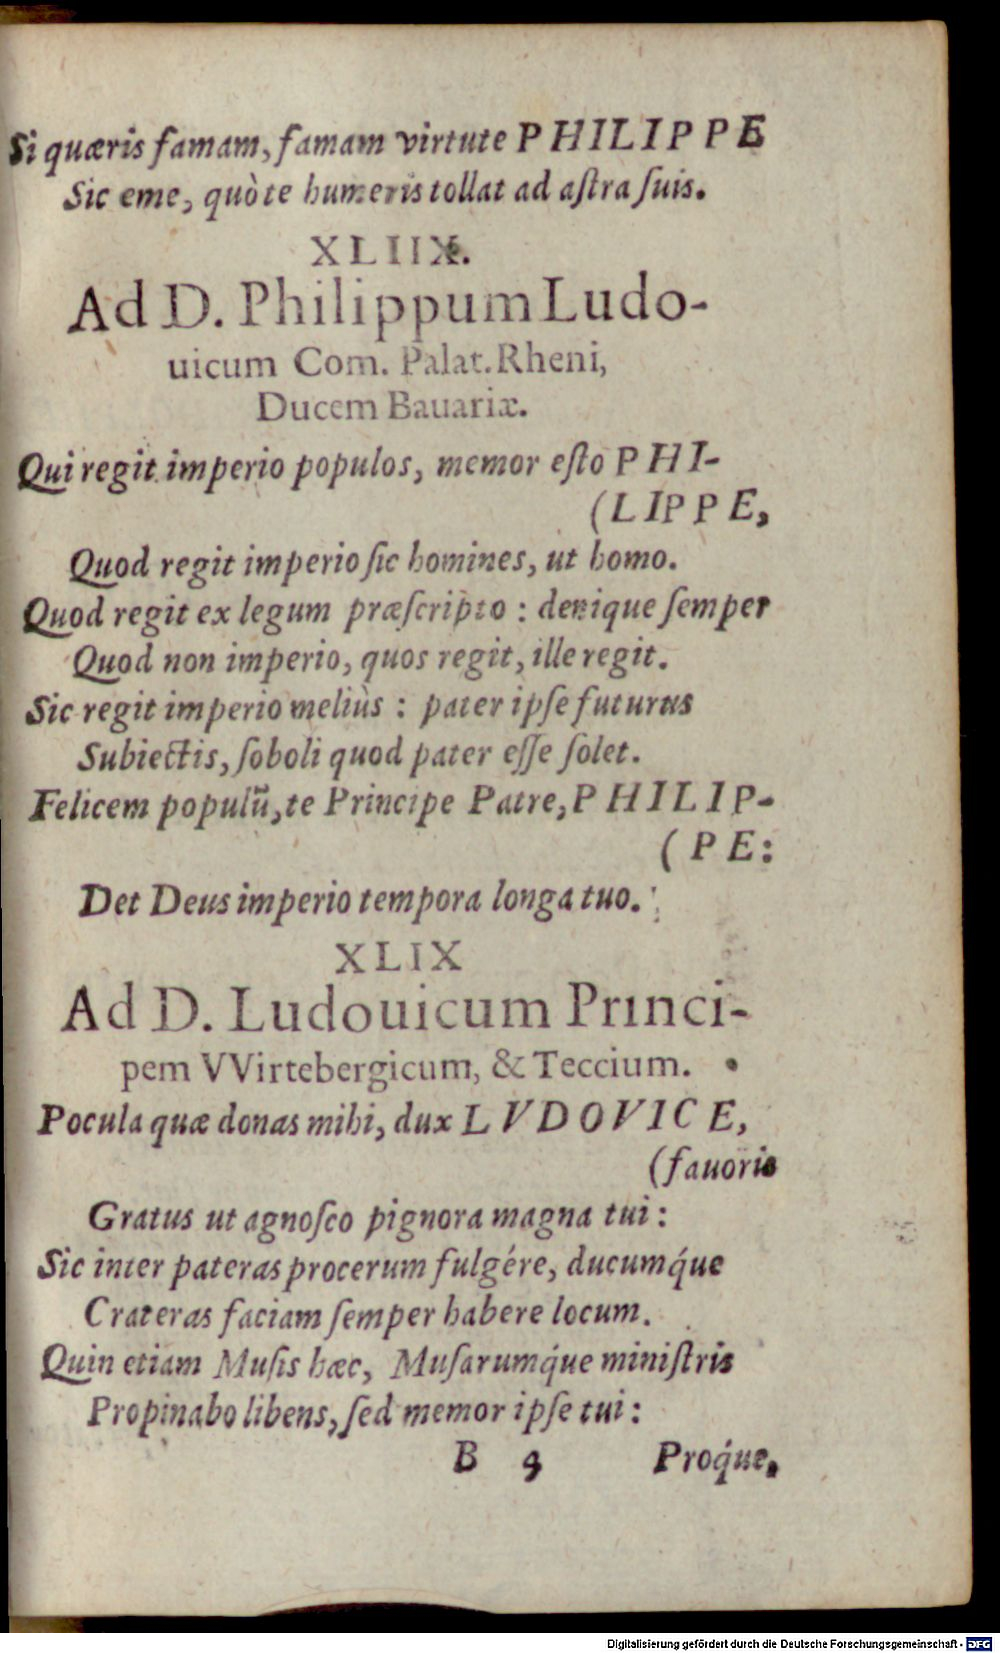 Si quæris famam, famam virtute PHILIPPE
Sic eme, quò te humeris tollat ad aſtra ſuis.
XLIIX.
Ad D. Philippum Ludo-
uicum Com. Palat. Rheni,
Ducem Bauariæ.
Qui regit imperio populos, memor eſto PHI-
(LIPPE,
Quod regit imperio ſic homines, ut homo.
Quod regit ex legum præſcripto : denique ſemper
Quod non imperio, quos regit, ille regit.
Sic regit imperio meliùs : pater ipſe futurus
Subiectis, ſoboli quod pater eſſe ſolet.
Felicem populũ, te Principe Patre, PHILIP-
(PE:
Det Deus imperio tempora longa tuo.
XLIX
Ad D. Ludouicum Princi-
pem VVirtebergicum, & Teccium.
Pocula quæ donas mihi, dux LVDOVICE,
(fauoris
Gratus ut agnoſco pignora magna tui :
Sic inter pateras procerum fulgére, ducumq́ue
Crateras faciam ſemper habere locum.
Quin etiam Muſis hæc, Muſarumq́ue miniſtris
Propinabo libens, ſed memor ipſe tui :
B 4 Proq́ue.
Digitalisierung gefördert durch die Deutsche Forschungsgemeinschaft - DFG